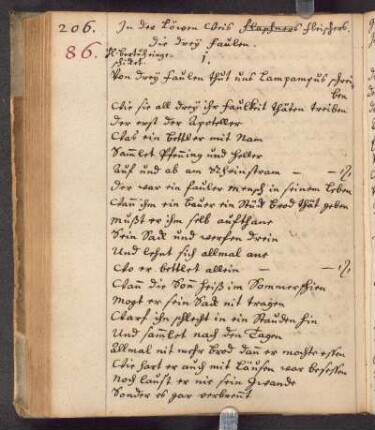 206. In der Löwen Weis Fleischers.
86. Die drey faulen.
1.
Von drey faulen thut uns Lampampus schrei-
ben
Wie sie all drey ihr faulkeit thäten treiben
der erst der Aposteller
Was ein bettler mit Nam
Sammlet Pfenning und heller
Auf und ab am Rheinstram
der war ein fauler Mensch in seinem Leben
Wann ihm ein bauer ein Stück Brod thät geben
Must er ihm selb aufthane
Sein Sack und werfen drein
Und lehnt sich allmal ane
Wo er bettlet allein
Wann die Son heiß im Sommer schien
Mogt er sein Sack nit tragen
Warf ihn schlecht in ein Stauden hin
Und sammlet nach den Tagen
Allmal nit mehr brod dann er mochte essen
Wie hart er auch mit Läusen war besessen
Noch laust er nie sein Gwande
Sonder es gar verbrennt